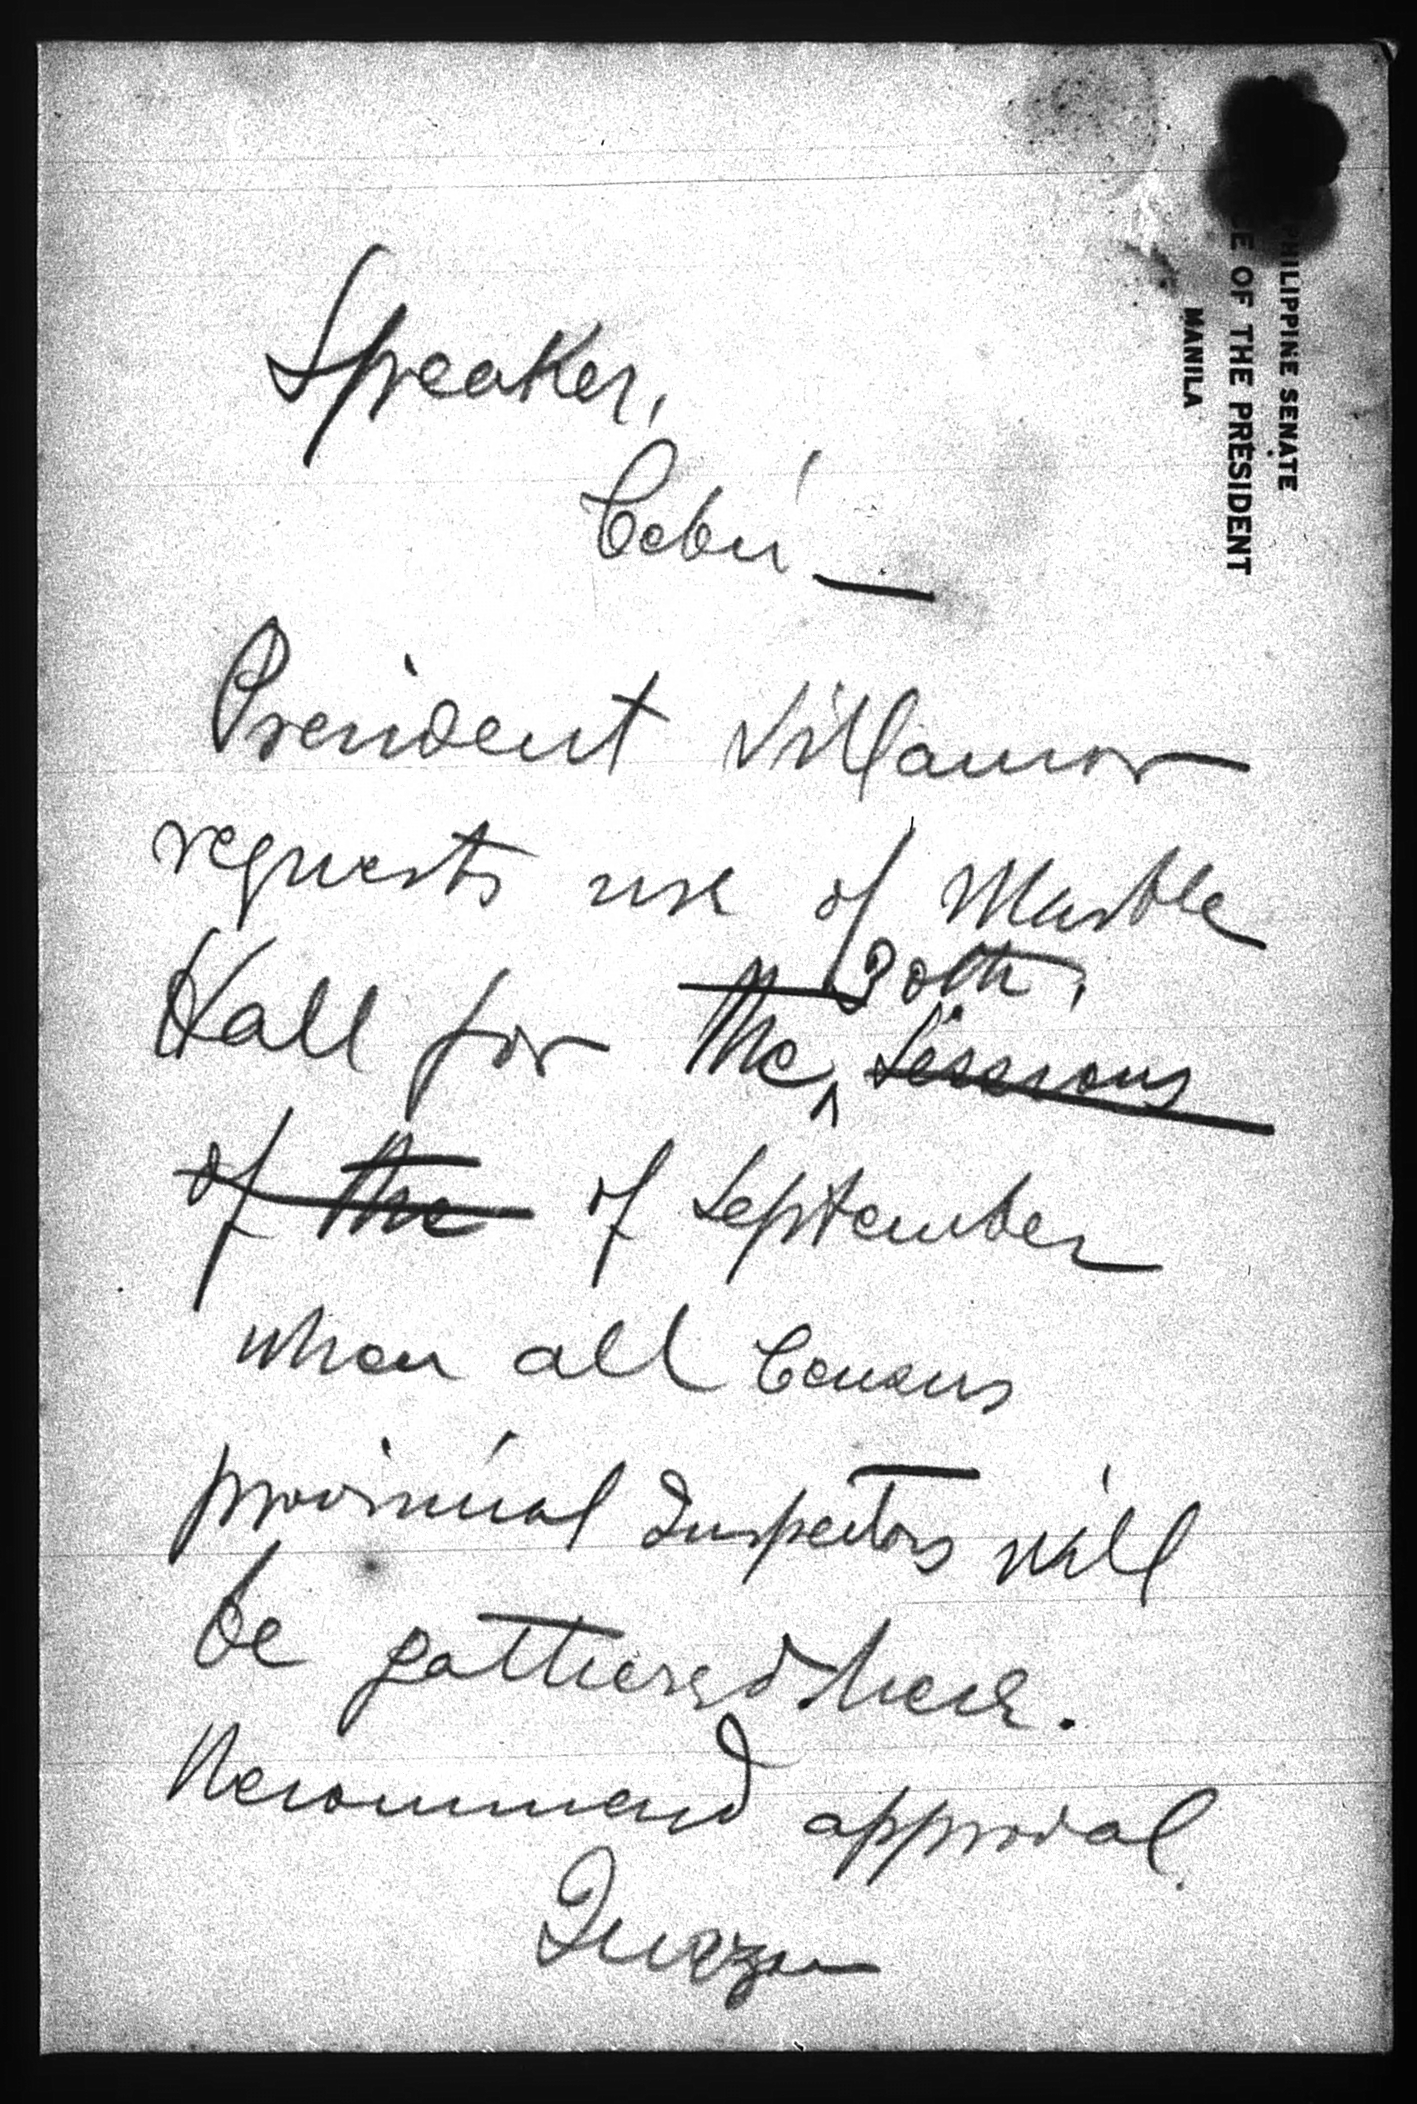 PHILIPPINE SENATE
OF THE PRESIDENT
MANILA
Speaker,
Cebú —
President Villamor
requests use of Marble
30th,
Hall for the sessions
of the of September
when all Census
provincial Inspectors will
be gathered here.
Recommend approval.
Quezon